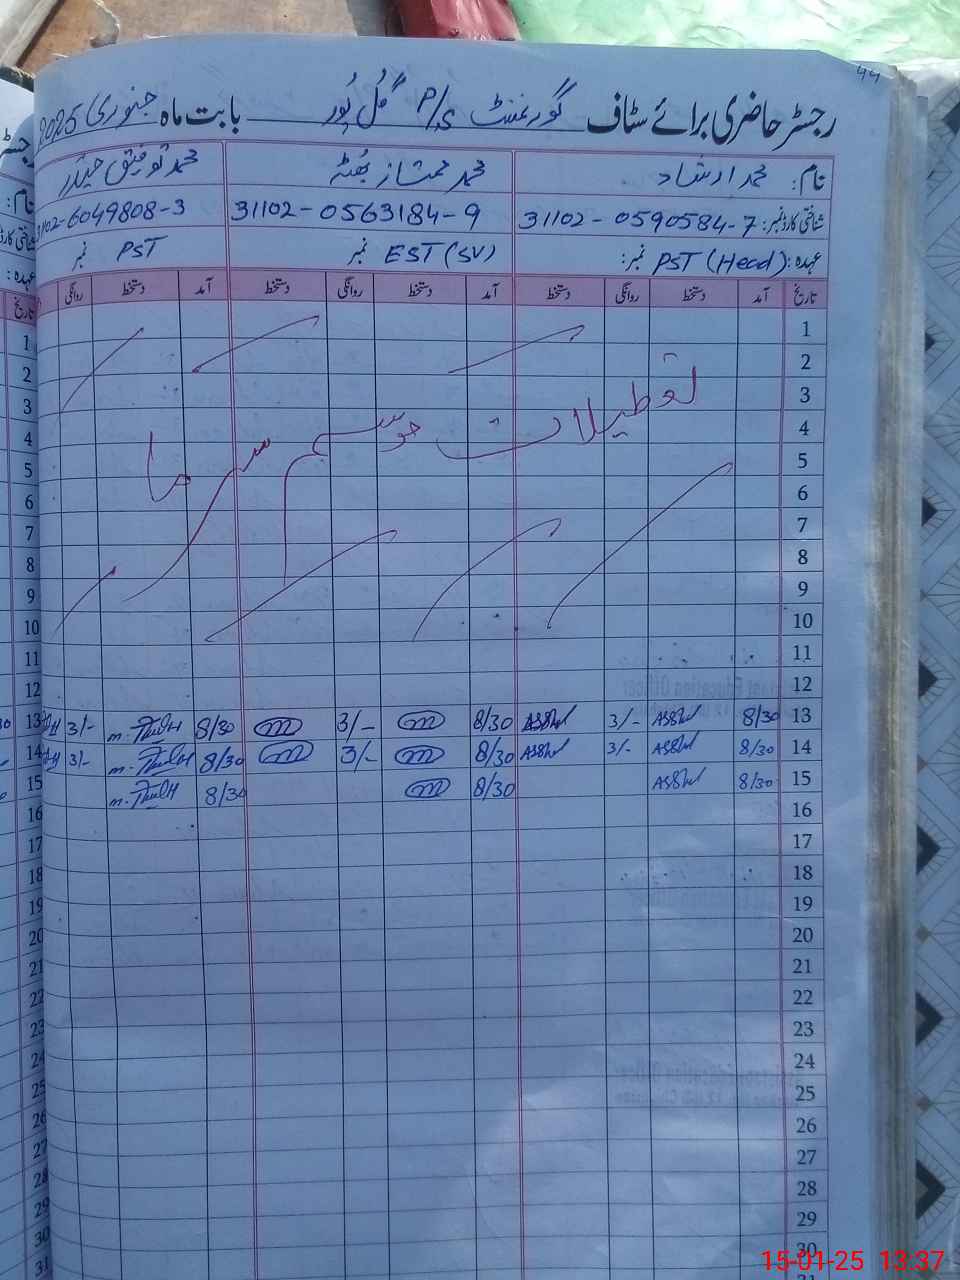 44
رجسٹر حاضری برائے سٹاف گورنمنٹ P/S گل پور بابت ماہ جنوری 2025
نام: محمد ارشاد محمد ممتاز بھٹہ محمد توفیق حیدر
شناختی کارڈ نمبر: 31102-0590584-7 31102-0563184-9 31102-6049808-3
عہدہ: PST (Head) نمبر: EST (SV) نمبر PST نمبر
تاریخ آمد دستخط روانگی دستخط آمد دستخط روانگی دستخط آمد دستخط روانگی
1
2
3
4
5
6
7
8
9
10
تعطیلات موسم سرما
11
12
13 8/30 3/- 8/30 3/- 8/30 3/-
14 8/30 3/- 8/30 3/- 8/30 3/-
15 8/30 8/30 8/30
16
17
18
19
20
21
22
23
24
25
26
27
28
29
30
31
15-01-25 13:37